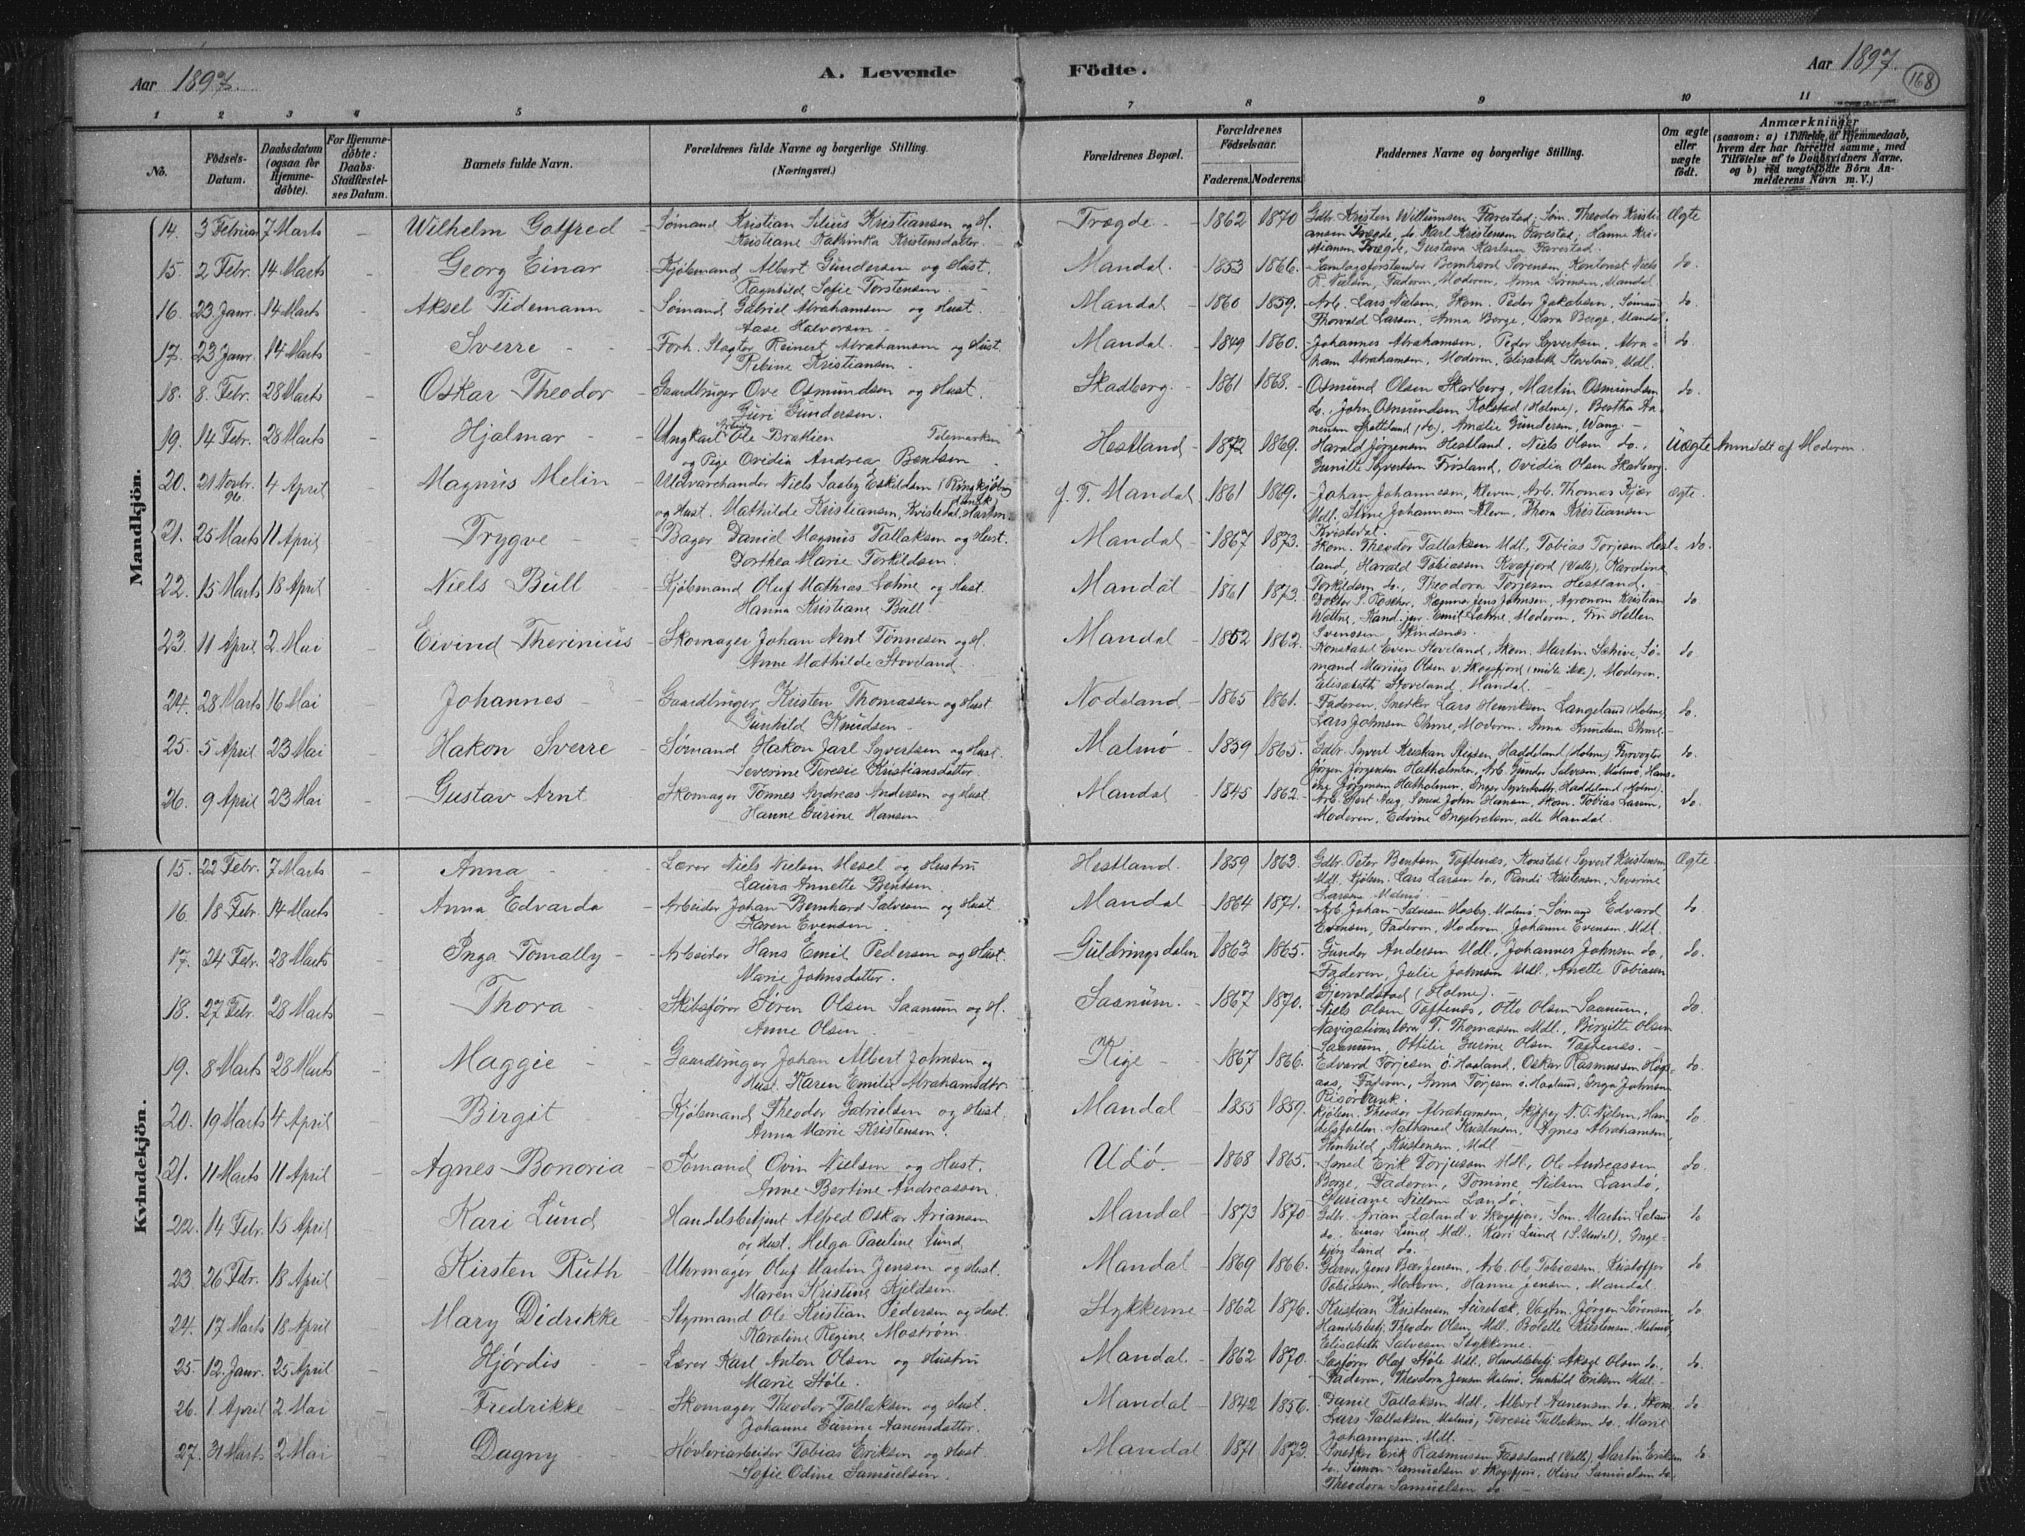 Aar 1897. A. Levende Födte. Aar 1897.
168
1 2 3 4 5 6 7 8 9 10 11
No. Födsels-Datum. Daabsdatum (ogsaa for Hjemme-döbte). For Hjemme-döbte: Daabs-Stadfæstel-ses Datum. Barnets fulde Navn. Forældrenes fulde Navne og borgerlige Stilling. (Næringsvei.) Forældrenes Bopæl. Forældrenes Födselsaar. Faderens. Moderens. Faddernes Navne og borgerlige Stilling. Om ægte eller uægte födt. Anmærkninger (saasom: a) i Tilfælde af Hjemmedaab, hvem der har forrettet samme, med Tilföielse af to Daabsvidners Navne, og b) ved uægtefödte Börn An-melderens Navn m. V.)
Mandkjön.
14. 3 Februar 7 Marts - Wilhelm Gotfred - Sømand Kristian Silius Kristiansen og H. Trægde - 1862 1870 Gdbr. Kristen Willumsen Farestad; Søm. Theodor Kristi- Ægte
Kristiane Kathinka Kristensdatter - ansen Trægde, do Karl Kristensen Farestad; Hanne Kri-
stiansen Trægde, Gustava Karlsen Farestad.
15. 2 Febr. 14 Marts - Georg Einar - Kjøbmand Albert Gundersen og Hust. Mandal. - 1853 1866. Samlagsforstander Bernhard Sørensen, Kontorist Niels do.
Ragnhild Sofie Torstensen. - R. Nielsen, Faderen, Moderen, Anna Sørensen, Mandal.
16. 23 Janr. 14 Marts - Aksel Tidemann - Sømand Gabriel Abrahamsen og Hust. Mandal - 1860 1859. Arb. Lars Nielsen, Skom. Peder Jakobsen, Sømand do.
Aase Halvorsen - Thorvald Larsen, Anna Berge, Sara Berge, Mandal.
17. 23 Janr. 14 Marts - Sverre - Forh. Slagter Reinert Abrahamsen og Hust. Mandal. - 1849 1860. Johannes Abrahamsen, Peder Syvertsen, Abra- do.
Kristiansen - ham Abrahamsen, Moderen, Elisabeth Stoveland, Mdl.
18. 8 Febr. 28 Marts - Oskar Theodor - Gaardbruger Ove Osmundsen og Hust. Skadberg - 1861 1868. Osmund Olsen Skarberg, Martin Osmundsen do.
Guri Gundersen. do, John Osmundsen Kolstad (Holme), Bertha Aa-
nensen (do), Amalie Gundersen, Wang. -
19. 14 Febr. 28 Marts - Hjalmar - Ungkarl Arbeid. Ole Bratlien Telemarken Hestland. - 1872 1869. Harald Jørgensen Hestland, Niels Olsen do, Uægte Anmeldt af Moderen.
og Pige Ovidia Andrea Bentsen. Gunille Syvertsen Frøsland, Ovidia Olsen Skarberg.
20. 21 Novbr. 96. 4 April - Magnus Melin - Uldvarehandler Niels Eskildsen (Ringkjøbing dansk) f. T. Mandal 1861 1869. Johan Johannesen, Kleven, Arb. Thomas Kjær Ægte.
og Hust. Mathilde Kristiansen, Kvisledal, Mdl. Stine Johannesen Kleven, Thora Kristiansen
21. 25 Marts 11 April - Trygve - Bager Daniel Magnus Tallaksen og Hust. Mandal - 1867 1873. Skom. Theodor Tallaksen Mdl, Tobias Torjesen Hest- do.
Dorthea Marie Torkildsen. land, Harald Tobiassen Kvafjord (Valle), Karoline
Torkildsen do, Theodora Torjesen Hestland. -
22. 15 Marts 18 April - Niels Bull - Kjøbmand Oluf Mathias Lohne og Hust. Mandal - 1861 1873. Doktor S. , Ragnva Jens Johnsen, Agronom Kristian do.
Hanna Kristiane Bull - Kand. jur. Emil Lohne, Moderen, Fru Hellen
Svenssen,
23. 11 April 2 Mai - Eivind Therinius - Skomager Johan Arnt Tønnesen og H. Mandal - 1862 1862. Konstabel Even Stoveland, Skom. Martin Schive, Sø- do.
Anne Mathilde Stoveland. mand Marius Olsen v. Skogsfjord (mile ikke), Moderen.
Elisabeth Stoveland, Mandal. -
24. 28 Marts 16 Mai - Johannes - Gaardbruger Kristen Thomassen og Hust. Nodeland - 1865 1861. Faderen, Snedker Lars Henriksen Langeland (Holme) do.
Gunhild Knudsen - Lars Johnsen Ohme, Moderen, Anna Knudsen Ohme. -
25. 5 April 23 Mai - Hakon Sverre - Sømand Hakon Jarl Syvertsen og Hust. Malmø - 1859 1865. Gdbr. Syvert Kristian Haddeland (Holme), Fyrvogter do.
Severine Teresie Kristiansdatter. Jørgen Jørgensen Hatholmen, Arb. Gunder Salvesen, Malmø, Hans-
ine Jørgensen Hatholmen, Inger Syvertsdtr. Haddeland (Holme).
26. 9 April 23 Mai - Gustav Arnt - Skomager Tønnes Andreas Andersen og Hust. Mandal - 1845 1862. Arb. Gert Aag, Smed John Hansen, Skom. Tobias Larsen, do.
Hanne Gurine Hansen. Moderen, Edvine Ingebretsen, alle Mandal.
Kvindekjön.
15. 22 Febr. 7 Marts - Anna - Lærer Niels Nielsen Mesel og Hustru Hestland. 1859 1863. Gdbr. Peter Bentsen Toftenæs, Konstabel Syvert Kristensen Ægte
Laura Annette Bentsen. Mdl, Sjølsm. Lars Larsen do, Randi Kristensen, Severine
Larsen Malmø. -
16. 18 Febr. 14 Marts - Anna Edvarda - Arbeider Johan Bernhard Salvesen og Hust. Mandal - 1864 1871. Arb. Johan Salvesen Malmø, Sømand Edvard do.
Karen Evensen. Evensen, Faderen, Moderen, Johanne Evensen, Mdl.
17. 24 Febr. 28 Marts - Inga Tomally - Arbeider Hans Emil Pedersen og Hust. Guldringsdalen 1863 1865. Gunder Andersen Mdl, Johannes Johnsen do, do.
Marie Johnsdatter. Faderen, Julie Johnsen Mdl, Anette Tobiasen
Gjervoldstad (Holme). -
18. 27 Febr. 28 Marts - Thora - Skibsfører Søren Olsen Saanum og H. Saanum. - 1867 1870. Niels Olsen Toftenes, Otto Olsen Saanum, do.
Anne Olsen. Navigationslærer T. Thomassen Mdl, Birgitte Olsen
Saanum, Otilie Gurine Olsen Toftenæs. -
19. 8 Marts 28 Marts - Maggie - Gaardbruger Johan Albert Johnsen og Rige - 1867 1866. Edvard Torjesen ö. Haaland, Oskar Rasmussen Høg- do.
Hust. Karen Emilie Abrahamsdtr. aas, Faderen, Anna Torjesen ö. Haaland, Inga Johnsen
Risørbank.
20. 19 Marts 4 April - Birgit - Kjøbmand Theodor Gabrielsen og Hust. Mandal - 1855 1859. Kjølsm. Theodor Abrahamsen, N. O. Nielsen, Han- do.
Anna Marie Kristensen. delsfuldm. Nathanael Kristensen, Agnes Abrahamsen,
Gunhild Kristensen, Mdl
21. 11 Marts 11 April - Agnes Bonoria - Sømand Ovin Nielsen og Hust. Udö. - 1868 1865. Smed Erik Torjussen Mdl, Ole Andreassen do.
Anne Bertine Andreassen. Berge, Faderen, Tomine Nielsen Landö,
Guriane Nielsen Landö.
22. 14 Febr. 15 April - Kari Lund - Handelsbetjent Alfred Oskar Ariansen Mandal - 1873 1870. Gdbr. Arian Laland v. Skogsfjor., Søm. Martin Laland do
og Hust. Helga Pauline Lund do. Einar Lund Mdl, Kari Lund (S. Undal), Inge-
bjørg Lund do. -
23 26 Febr. 18 April - Kirsten Ruth - Uhrmager Oluf Martin Jensen og Hust. Mandal - 1869 1866. Garver Jens Jensen, Arb. Ole Tobiassen, Kristoffer do
Maren Kristine Kjeldsen. Tobiassen, Moderen, Hanne Jensen, Mandal.
24. 17 Marts 18 April - Mary Didrikke - Styrmand Ole Kristian Pedersen og Hust. Stykkerne - 1862 1876. Kristian Kristensen Aurebæk, Vagtm. Jørgen Sørensen, do.
Karoline Regine Mostrøm. Handelsbetj. Theodor Olsen Mdl. Bolette Kristensen, Malmø,
Elisabeth Salvesen Stykkerne.
25. 12 Janr. 25 April - Hjørdis - Lærer Karl Anton Olsen og Hustru Mandal. - 1862 1870. Sagfører Olaf Støle Mdl, Handelsbetj. Aksel Olsen do, do.
Marie Støle. Faderen, Theodora Jensen Malmö, Gunhild Eriksen Mdl. -
26. 1 April 2 Mai - Fredrikke - Skomager Theodor Tallaksen og Hust. Mandal - 1842 1856. Daniel Tallaksen Mdl, Albert Aanensen do, Skom. do
Johanne Gurine Aanensdatter. Lars Tallaksen Malmö, Teresie Tallaksen do, Marie
Johannesen, Mdl. -
27. 31 Marts 2 Mai - Dagny - Høvleriarbeider Tobias Eriksen og Hust. Mandal. 1871 1873. Snedker Erik Rasmussen Fasseland (Valle), Martin Eriksen do.
Sofie Odine Samuelsen. do. Simon Samuelsen v. Skogsfjor., Oline Samuelsen do.
Theodora Samuelsen do. -